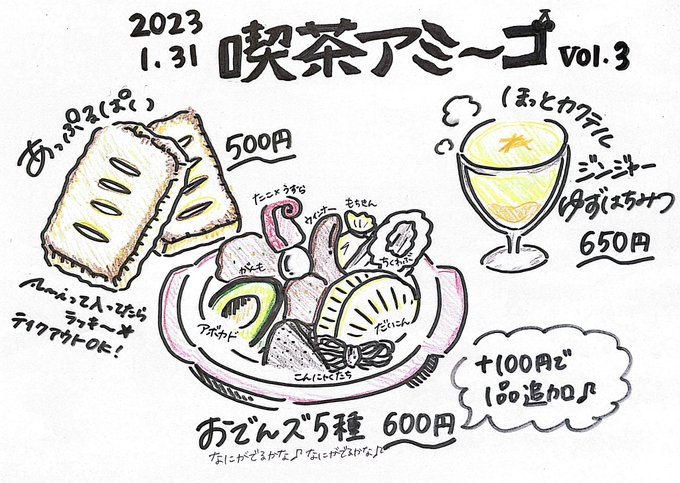 2023
1.31
喫茶アミ〜ゴ vol.3
あっぷるぱい
500円
って入ってたら
ラッキ〜★
テイクアウトOK!
ほっとカクテル
ジンジャー
ゆずはちみつ
650円
たこ×うずら
ウインナー
もちきん
ちくわぶ
がんも
アボカド
だいこん
こんにゃくたち
おでんズ5種 600円
なにがでるかな♪ なにがでるかな♪
+100円で
1品追加♪